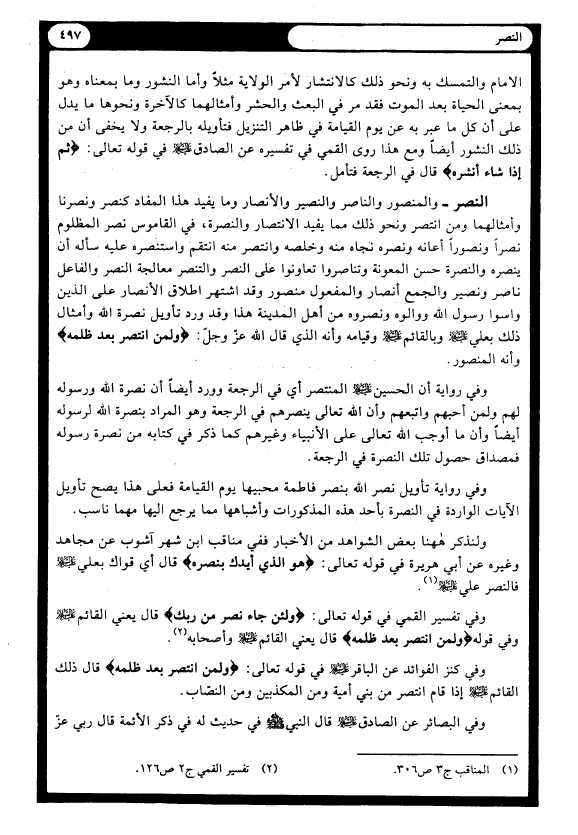 النصر
٤٩٧
الامام والتمسك به ونحو ذلك كالانتشار لأمر الولاية مثلاً وأما النشور وما بمعناه وهو
بمعنى الحياة بعد الموت فقد مر في البعث والحشر وأمثالهما كالآخرة ونحوها ما يدل
على أن كل ما عبر به عن يوم القيامة في ظاهر التنزيل فتأويله بالرجعة ولا يخفى أن من
ذلك النشور أيضاً ومع هذا روى القمي في تفسيره عن الصادق ﵇ في قوله تعالى: ﴿ثم
إذا شاء أنشره﴾ قال في الرجعة فتأمل.
النصر ـ والمنصور والناصر والنصير والأنصار وما يفيد هذا المفاد كنصر ونصرنا
وأمثالهما ومن انتصر ونحو ذلك مما يفيد الانتصار والنصرة، في القاموس نصر المظلوم
نصراً ونصوراً أعانه ونصره نجاه منه وخلصه وانتصر منه انتقم واستنصره عليه سأله أن
ينصره والنصرة حسن المعونة وتناصروا تعاونوا على النصر والتنصر معالجة النصر والفاعل
ناصر ونصير والجمع أنصار والمفعول منصور وقد اشتهر اطلاق الأنصار على الذين
واسوا رسول الله ووالوه ونصروه من أهل المدينة هذا وقد ورد تأويل نصرة الله وأمثال
ذلك بعلي ﵇ وبالقائم ﵇ وقيامه وأنه الذي قال الله عزّ وجلّ: ﴿ولمن انتصر بعد ظلمه﴾
وأنه المنصور.
وفي رواية أن الحسين ﵇ المنتصر أي في الرجعة وورد أيضاً أن نصرة الله ورسوله
لهم ولمن أحبهم واتبعهم وأن الله تعالى ينصرهم في الرجعة وهو المراد بنصرة الله لرسوله
أيضاً وأن ما أوجب الله تعالى على الأنبياء وغيرهم كما ذكر في كتابه من نصرة رسوله
فمصداق حصول تلك النصرة في الرجعة.
وفي رواية تأويل نصر الله بنصر فاطمة محبيها يوم القيامة فعلى هذا يصح تأويل
الآيات الواردة في النصرة بأحد هذه المذكورات وأشباهها مما يرجع اليها مهما ناسب.
ولنذكر هٰهنا بعض الشواهد من الأخبار ففي مناقب ابن شهر آشوب عن مجاهد
وغيره عن أبي هريرة في قوله تعالى: ﴿هو الذي أيدك بنصره﴾ قال أي قواك بعلي ﵇
فالنصر علي ﵇(١).
وفي تفسير القمي في قوله تعالى: ﴿ولئن جاء نصر من ربك﴾ قال يعني القائم ﵇
وفي قوله ﴿ولمن انتصر بعد ظلمه﴾ قال يعني القائم ﵇ وأصحابه(٢).
وفي كنز الفوائد عن الباقر ﵇ في قوله تعالى: ﴿ولمن انتصر بعد ظلمه﴾ قال ذلك
القائم ﵇ إذا قام انتصر من بني أمية ومن المكذبين ومن النصّاب.
وفي البصائر عن الصادق ﵇ قال النبي ﷺ في حديث له في ذكر الأئمة قال ربي عزّ
(١) المناقب ج٣ ص٣٠٦.
(٢) تفسير القمي ج٢ ص١٢٦.